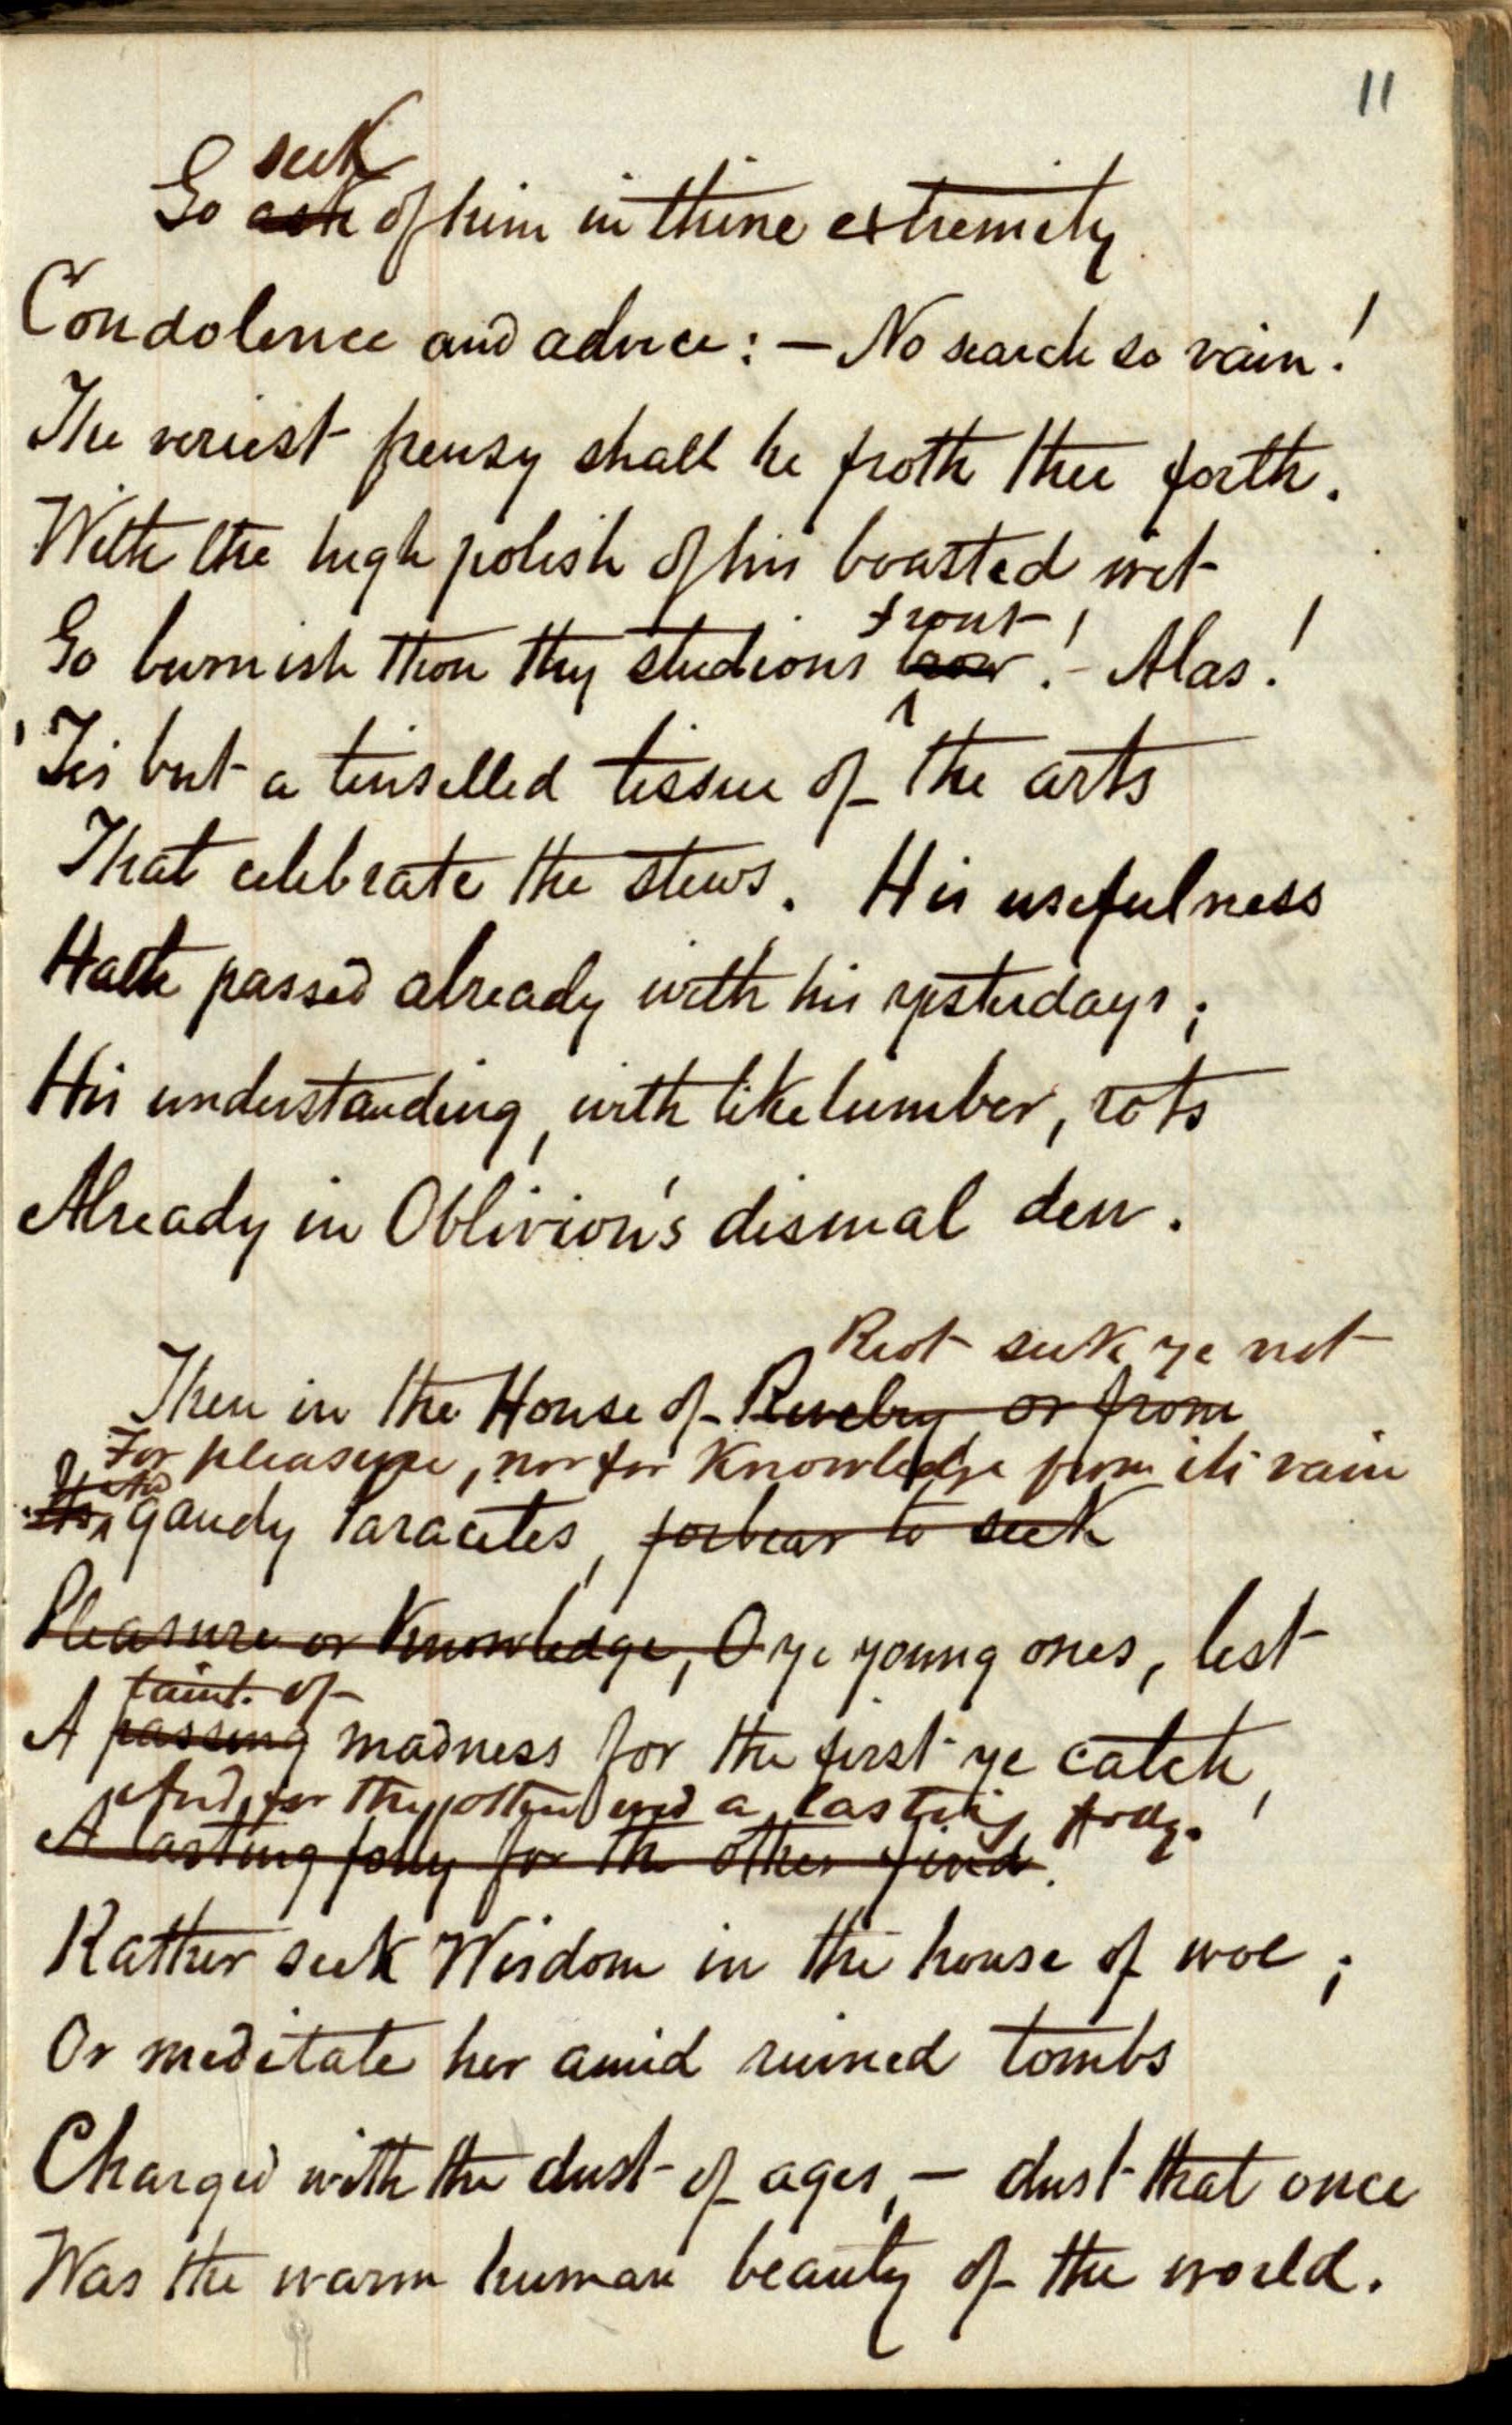 11
seek
Go ask of him in thine extremity
Condolence and advice: — No search so vain!
The veriest frenzy shall he froth thee forth.
With the high polish of his boasted wit
front!
Go burnish thou thy studious brow! - Alas!
'Tis but a tinselled tissue of the arts
That celebrate the stews. His usefulness
Hath passed already with his yesterdays;
His understanding, with like lumber, rots
Already in Oblivion's dismal den.
Riot seek ye not
Then in the House of Revelry or from
For pleasure, nor for Knowledge from its vain
And
Its gaudy Paracites, forbear to seek
Pleasure or Knowledge, O ye young ones, lest
taint of
A passing madness for the first ye catch,
And, for the other end a lasting folly.
A lasting folly for the other find.
Rather seek Wisdom in the house of woe;
Or meditate her amid ruined tombs
Charged with the dust of ages, — dust that once
Was the warm human beauty of the world.